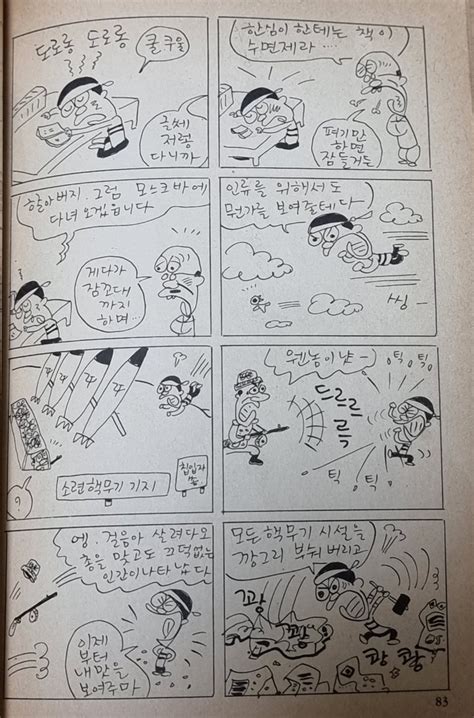 도로롱 도로롱
쿨쿠울
글쎄
저렇
다니까
한심이 한테는 책이
수면제라‥‥
펴기만
하면
잠들거든
할아버지. 그럼 모스크바에
다녀 오겠읍니다
게다가
잠꼬대
까지
하며‥‥
인류를 위해서도
뭔가를 보여줄테다
씽-
소련핵무기 기지
침입자
?
웬놈이냣-
드르르륵
틱 틱
틱
틱
엥. 걸음아 살려다오
총을 맞고도 끄떡없는
인간이 나타났다
이제
부터
내맛을
보여주마
모든핵무기 시설을
깡그리 부숴 버리고
꽝
꽝
쾅 쾅
83